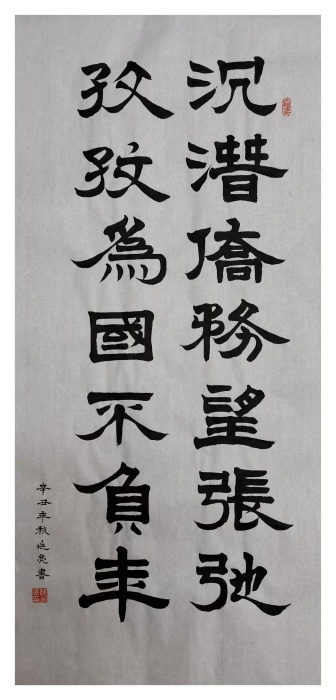 沉潛僑務望張弛
孜孜為國不負年
辛丑年秋延亮書